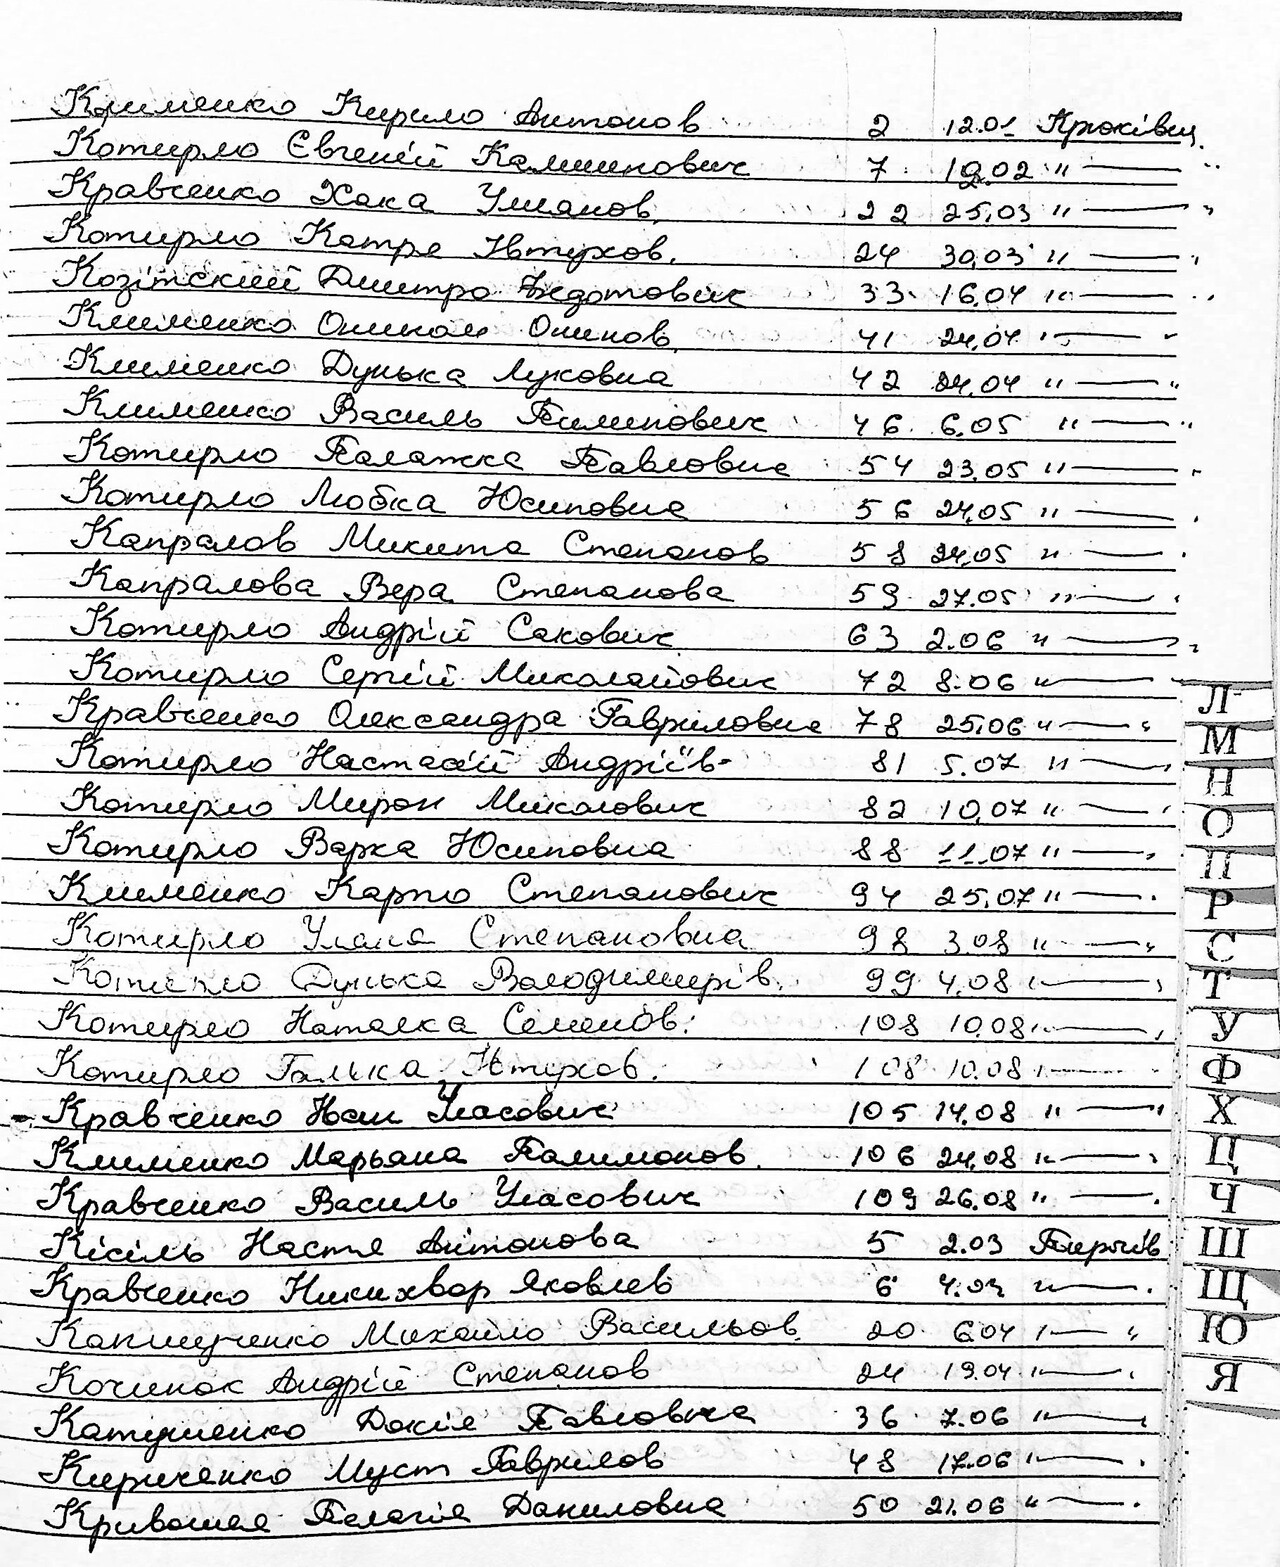 Клименко Кирило Антонов 2 12.01 Крюківщ.
Котирло Євгеній Калинпович 7 19.02 " — "
Кравченко Хака Улианов. 22 25.03 " — "
Котирло Катря Івтухов. 24 30.03 " — "
Козітский Дмитро Федотович 33 16.04 " — "
Клименко Опинов. 41 24.04 " — "
Клименко Дунька Луковна 42 24.04 " — "
Клименко Василь Пилипович 46 6.05 " — "
Котирло Палажка Павловна 54 23.05 " — "
Котирло Любка Юсиповна 56 24.05 " — "
Капралов Микита Степанов 58 24.05 " — "
Капралова Вера Степанова 59 27.05 " — "
Котирло Андрій Сакович 63 2.06 " — "
Котирло Сергій Миколайович 72 8.06 " —
Кравченко Олександра Гавриловна 78 25.06 " — "
Котирло Настасій Андріїв- 81 5.07 " — "
Котирло Мирон Миколович 82 10.07 " — "
Котирло Варка Юсиповна 88 11.07 " — "
Клименко Карпо Степанович 94 25.07 " — "
Котирло Уляна Степановна 98 3.08 " — "
Котирло Дунька Володимирів. 99 4.08 " — "
Котирло Наталка Семенов. 108 10.08 " — "
Котирло Галька Івтухов. 108 10.08 " —
Кравченко Іван Уласович 105 14.08 " — "
Клименко Марьяна Палимонов. 106 24.08 " — "
Кравченко Василь Уласович 109 26.08 " — "
Кісіль Настя Антонова 5 2.03
Кравченко Никихвор Яковлев 6 " — "
Михайло Васильов. 20 6.04 " — "
Кочинок Андрій Степанов 24 19.04 " — "
Катушенко Докія Павловна 36 7.06 " — "
Кириченко Муст Гаврилов 48 17.06 " — "
Кривошея Пелагія Даниловна 50 21.06 " — "
Л
М
Н
О
П
Р
С
Т
У
Ф
Х
Ц
Ч
Ш
Щ
Ю
Я